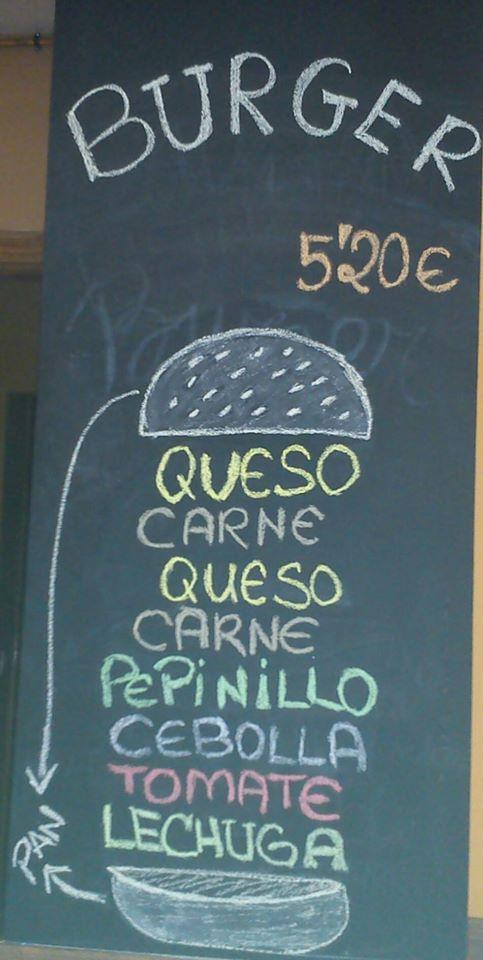 BURGER
5'20€
QUESO
CARNE
QUESO
CARNE
PEPINILLO
CEBOLLA
TOMATE
LECHUGA
PAN